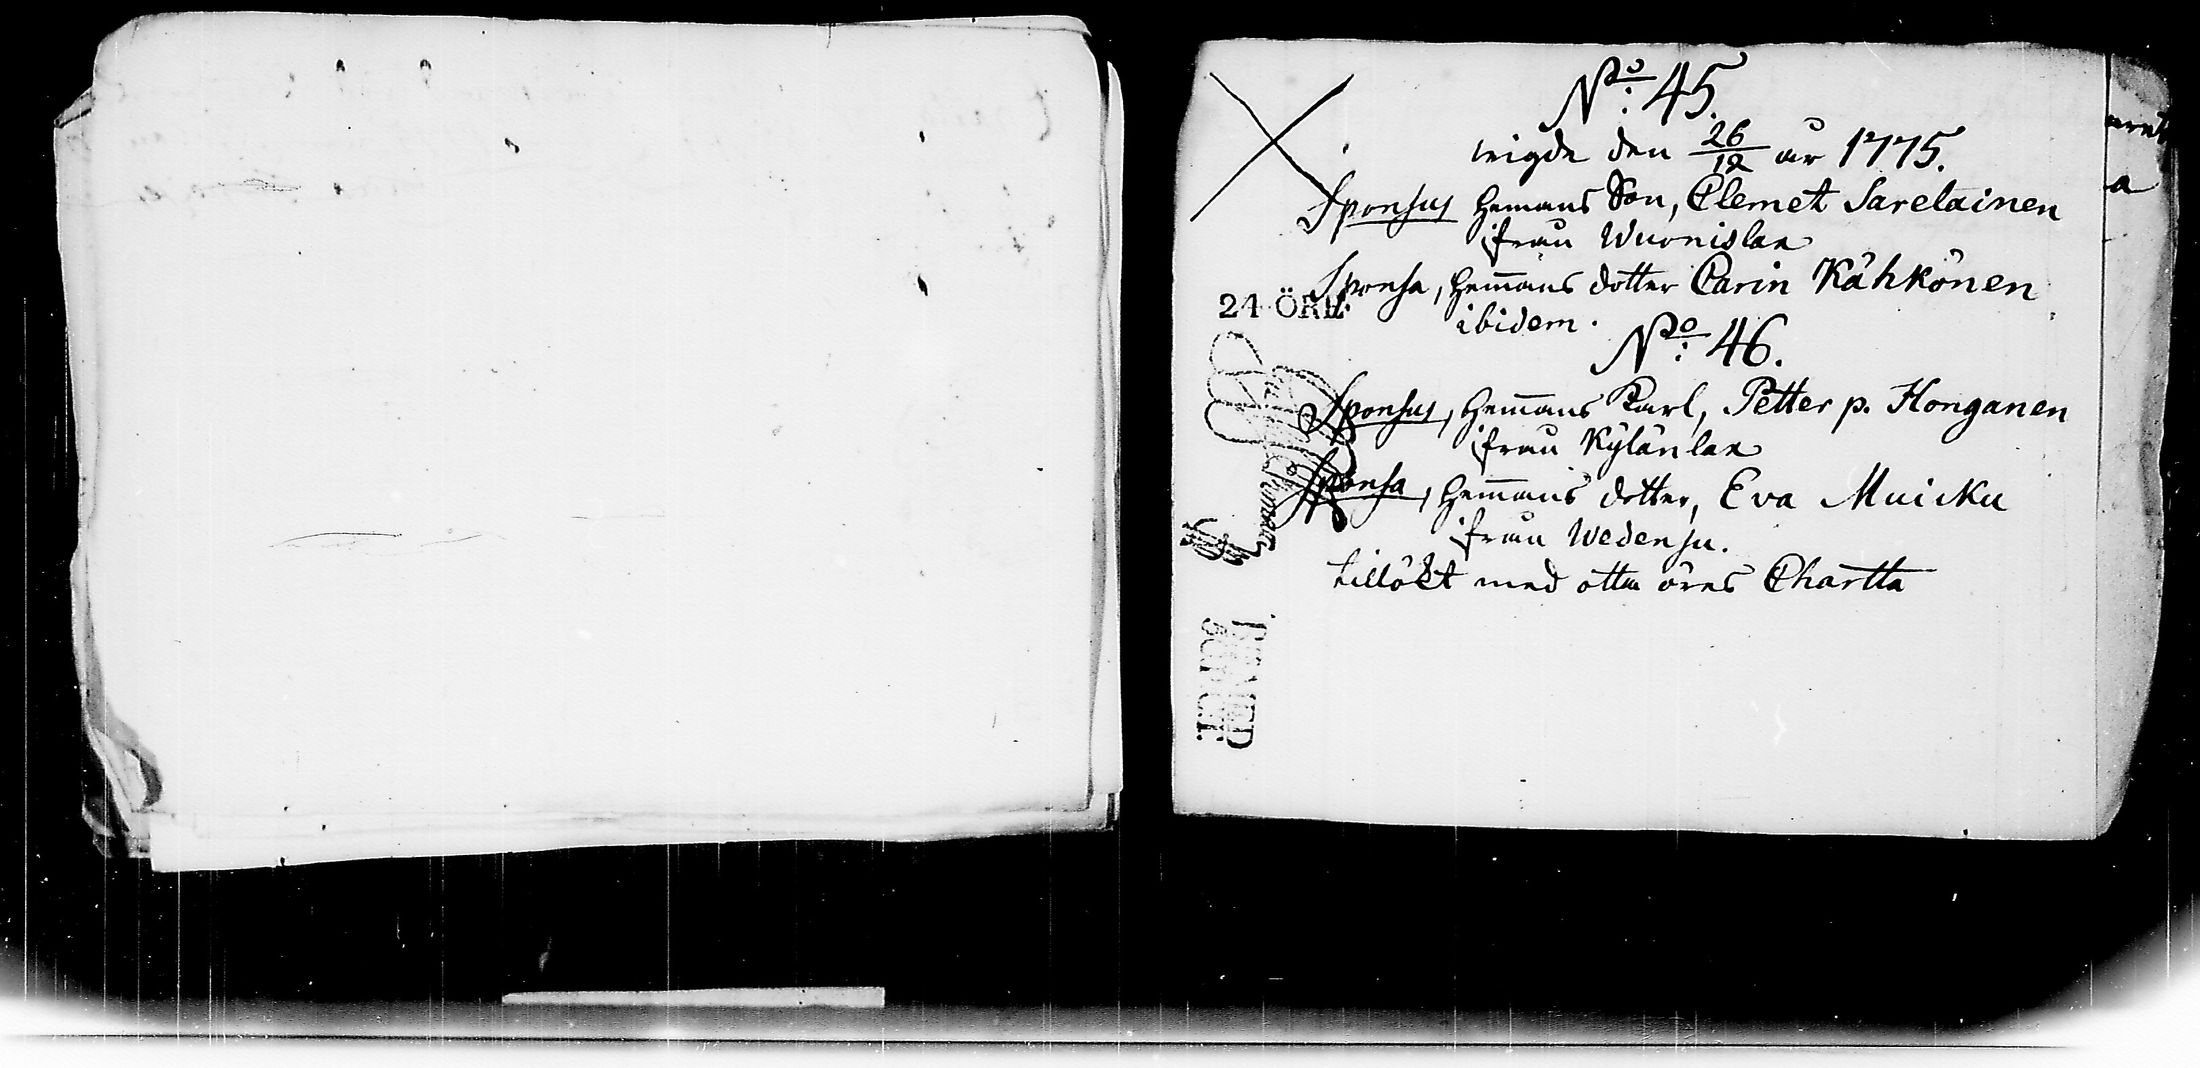 No: 45.
wigde den 26/12 år 1775.
Sponsus Hemans Son, Clemet Saretainen
ifrån Wuonislax
Sponsa, Hem̄ans dotter Carin Kåhkönen
24 ÖRE
ibidem.
No: 46.
Sponsus, Hem̄ans Karl, Petter p. Honganen
ifrån Kylänlax
Sponsa, Hem̄ans dotter, Eva Muicku
ifrån Wedensu.
tillökt med otta öres Chartta
a